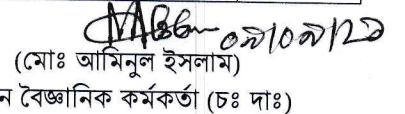 ০৯/০৯/২১
(মোঃ আমিনুল ইসলাম)
ন বৈজ্ঞানিক কর্মকর্তা (চঃ দাঃ)